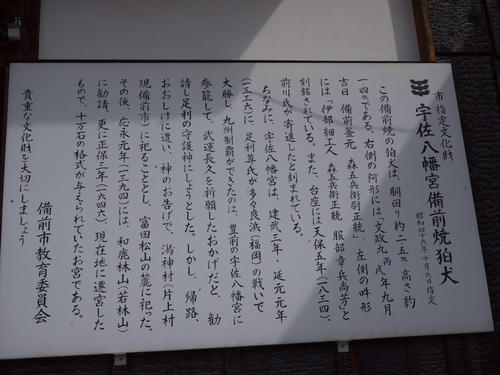 市指定文化財
宇佐八幡宮備前焼狛犬
昭和四十六年十月六日指定
この備前焼の狛犬は、胴回り約一二五㎝高さ約
一四〇㎝である。右側の阿形には「文政九丙戌年九月
吉日 備前釜元 森五兵衛正統 服部章兵尚芳」と
には「伊部細工人 森五兵衛正統
刻銘されている。また、台座には天保五年(一八三四)、
前川氏が寄進したと刻まれている。
ちなみに、宇佐八幡宮は、建武三年・延元元年
(一三三六)に、足利尊氏が多々良浜(福岡)の戦いで
大勝し、九州制覇ができたのは、豊前の宇佐八幡宮に
参籠して、武運長久を祈願したおかげだと、勧
請し足利の守護神にしようとした。しかし、帰路、
おおしけに遭い、神のお告げで、潟神村(片上村
現備前市)に祀ることとし、富田松山の麓に祀った。
その後、応永元年(一三九四)には、和鹿林山(若林山)
に勧請、更に正保三年(一六四六)、現在地に遷宮した
もので、十万石の格式が与えられていたお宮である。
貴重な文化財を大切にしましょう
備前市教育委員会